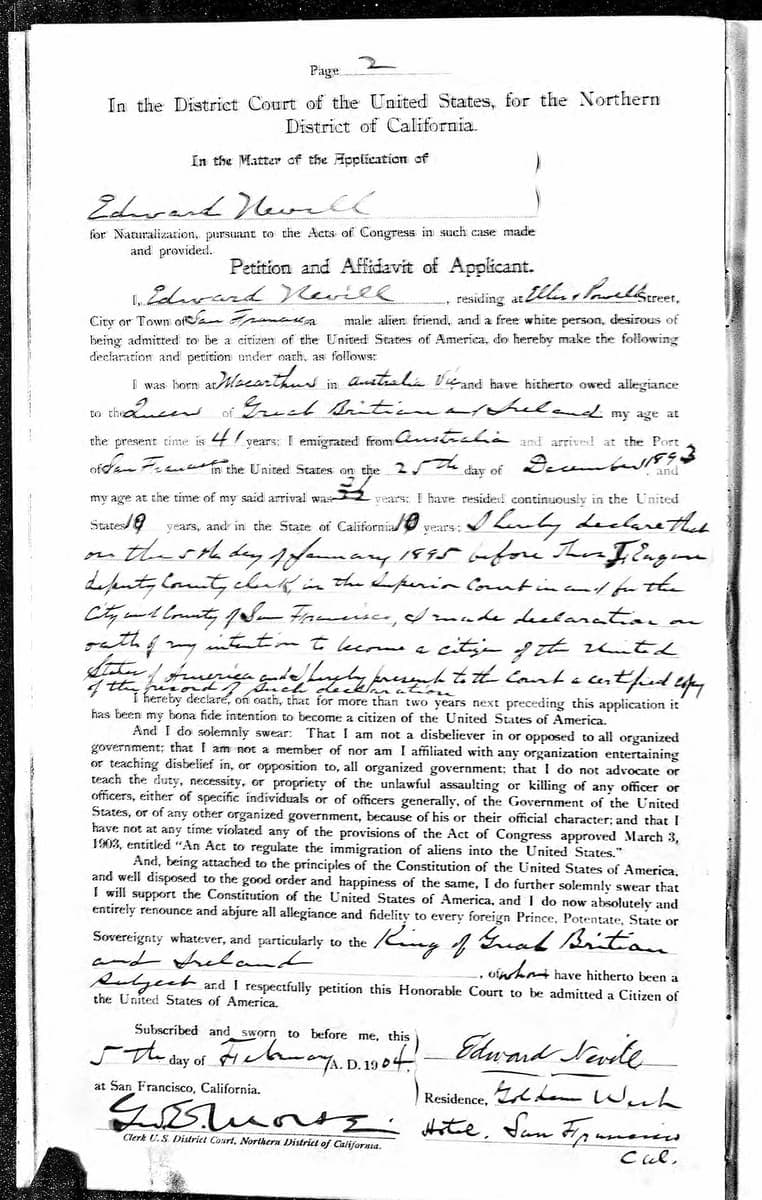 Page 2
In the District Court of the United States, for the Northern
District of California.
In the Matter of the Application of
Edward Nevill
for Naturalization, pursuant to the Acts of Congress in such case made
and provided.
Petition and Affidavit of Applicant.
I, Edward Nevill, residing at Ellis & Powell Street,
City or Town of San Francisco a male alien friend, and a free white person, desirous of
being admitted to be a citizen of the United States of America, do hereby make the following
declaration and petition under oath, as follows:
I was born at Macarthur in Australia Vic and have hitherto owed allegiance
to the Queen of Great Britian and Ireland my age at
the present time is 41 years; I emigrated from Australia and arrived at the Port
of San Francisco in the United States on the 25th day of December, 1893, and
my age at the time of my said arrival was 31 years; I have resided continuously in the United
States 10 years, and in the State of California 10 years; I hereby declare that
on the 5th day of January 1895 before Thos F. Eagan
deputy County clerk, in the Superior Court in and for the
City and County of San Francisco, I made declaration on
oath of my intention to become a citizen of the United
States of America and I hereby present to the Court a certified copy
of the record of such declaration
I hereby declare, on oath, that for more than two years next preceding this application it
has been my bona fide intention to become a citizen of the United States of America.
And I do solemnly swear: That I am not a disbeliever in or opposed to all organized
government; that I am not a member of nor am I affiliated with any organization entertaining
or teaching disbelief in, or opposition to, all organized government; that I do not advocate or
teach the duty, necessity, or propriety of the unlawful assaulting or killing of any officer or
officers, either of specific individuals or of officers generally, of the Government of the United
States, or of any other organized government, because of his or their official character; and that I
have not at any time violated any of the provisions of the Act of Congress approved March 3,
1903, entitled "An Act to regulate the immigration of aliens into the United States."
And, being attached to the principles of the Constitution of the United States of America,
and well disposed to the good order and happiness of the same, I do further solemnly swear that
I will support the Constitution of the United States of America, and I do now absolutely and
entirely renounce and abjure all allegiance and fidelity to every foreign Prince, Potentate, State or
Sovereignty whatever, and particularly to the King of Great Britian
and Ireland, of whom I have hitherto been a
subject and I respectfully petition this Honorable Court to be admitted a Citizen of
the United States of America.
Subscribed and sworn to before me, this
5th day of February A. D. 1904.
Edward Nevill
at San Francisco, California.
Residence, Golden West
Hotel, San Francisco
Cal.
Geo. E. Morse
Clerk U. S. District Court, Northern District of California.